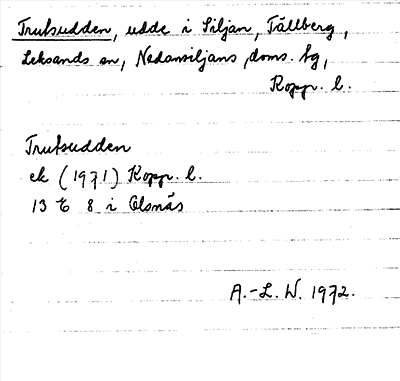 Trutsudden, udde i Siljan, Tällberg,
Leksands sn, Nedansiljans doms. hg,
Kopp. l.
Trutsudden
ek (1971) Kopp. l.
13 E 8 i Olsnäs
A.-L. W. 1972.